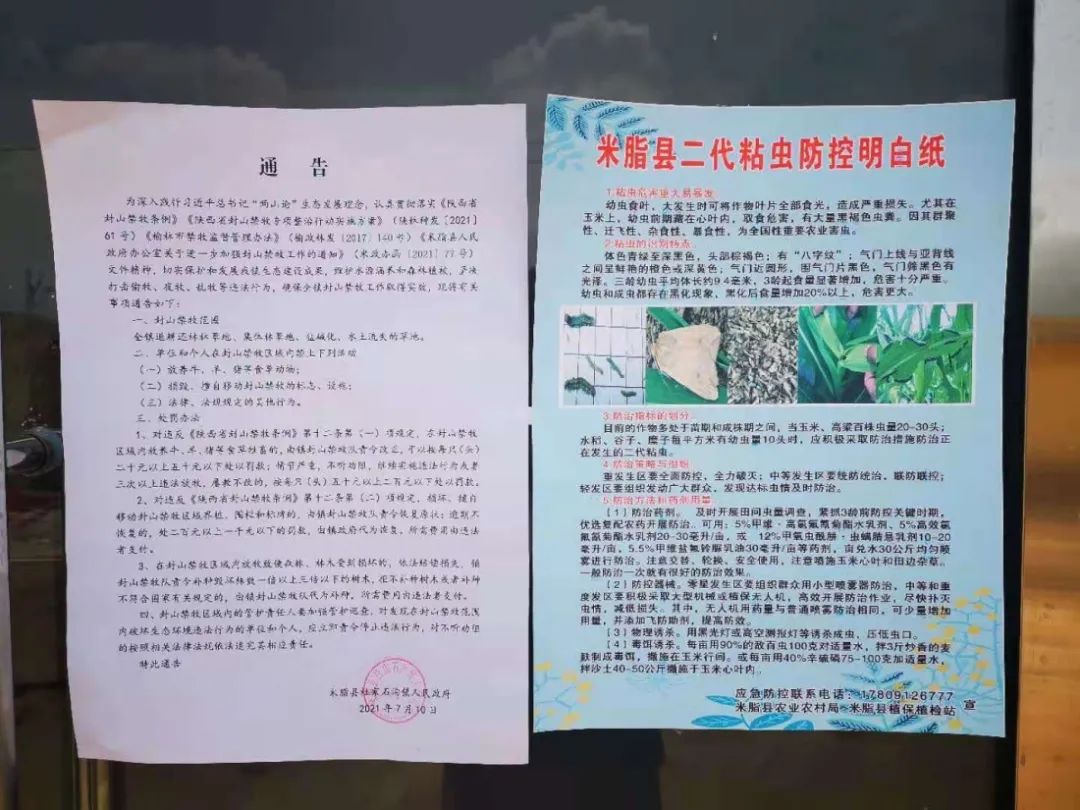 通 告
为深入践行习近平总书记“两山论”生态发展理念，认真贯彻落实《陕西省
封山禁牧条例》《陕西省封山禁牧专项整治行动实施方案》（陕林种发［2021］
61号）《榆林市禁牧监督管理办法》（榆政林发［2017］140号）《米脂县人民
政府办公室关于进一步加强封山禁牧工作的通知》（米政办函［2021］77号）
文件精神，切实保护和发展我镇生态建设成果，维护水源涵养和森林植被，严厉
打击偷牧、夜牧、乱牧等违法行为，确保全镇封山禁牧工作取得实效，现将有关
事项通告如下：
一、封山禁牧范围
全镇退耕还林林草地、集体林草地、盐碱化、水土流失的草地。
二、单位和个人在封山禁牧区域内禁止下列活动
（一）放养牛、羊、猪等食草动物；
（二）损毁、擅自移动封山禁牧的标志、设施；
（三）法律、法规规定的其他行为。
三、处罚办法
1、对违反《陕西省封山禁牧条例》第十二条第（一）项规定，在封山禁牧
区域内放养牛、羊、猪等食草牲畜的，由镇封山禁牧队责令改正，可以按每只（头）
二十元以上五十元以下处以罚款；情节严重，不听劝阻，继续实施违法行为或者
三次以上违法放牧，屡教不改的，按每只（头）五十元以上二百元以下处以罚款。
2、对违反《陕西省封山禁牧条例》第十二条第（二）项规定，损坏、擅自
移动封山禁牧区域界桩、围栏和标牌的，由镇封山禁牧队责令恢复原状；逾期不
恢复的，处二百元以上一千元以下的罚款，由镇政府代为恢复，所需费用由违法
者支付。
3、在封山禁牧区域内放牧致使森林、林木受到损坏的，依法赔偿损失，镇
封山禁牧队责令补种毁坏株数一倍以上三倍以下的树木，拒不补种树木或者补种
不符合国家有关规定的，由镇封山禁牧队代为补种，所需费用由违法者支付。
四、封山禁牧区域内的管护责任人要加强管护巡查，对发现在封山禁牧范围
内破坏生态环境违法行为的单位和个人，应立即责令停止违法行为，对不听劝阻
的按照相关法律法规依法追究其相应责任。
特此通告
米脂县杜家石沟镇人民政府
2021年7月10日
米脂县二代粘虫防控明白纸
1.粘虫危害重大易暴发
幼虫食叶，大发生时可将作物叶片全部食光，造成严重损失。尤其在
玉米上，幼虫前期藏在心叶内，取食危害，有大量黑褐色虫粪。因其群聚
性、迁飞性、杂食性、暴食性，为全国性重要农业害虫。
2.粘虫的识别特点。
体色青绿至深黑色，头部棕褐色；有“八字纹”；气门上线与亚背线
之间呈鲜艳的橙色或深黄色；气门近圆形，围气门片黑色，气门筛黑色有
光泽。三龄幼虫平均体长约9.4毫米，3龄起食量显著增加，危害十分严重。
幼虫和成虫都存在黑化现象，黑化后食量增加20%以上，危害更大。
3.防治指标的划分。
目前的作物多处于苗期和成株期之间，当玉米、高粱百株虫量20-30头；
水稻、谷子、糜子每平方米有幼虫量10头时，应积极采取防治措施防治正
在发生的二代粘虫。
4.防治策略与组织
重发生区要全面防控，全力破灭；中等发生区要统防统治，联防联控；
轻发区要组织发动广大群众，发现达标虫情及时防治。
5.防治方法和药剂用量。
（1）防治药剂。 及时开展田间虫量调查，紧抓3龄前防控关键时期，
优选复配农药开展防治。可用：5%甲维·高氯氟氰菊酯水乳剂、5%高效氯
氟氰菊酯水乳剂20-30毫升/亩，或 12%甲氧虫酰肼·虫螨腈悬乳剂10-20
毫升/亩，5.5%甲维盐氟铃脲乳油30毫升/亩等药剂，亩兑水30公斤均匀喷
雾进行防治。注意交替、轮换、安全使用，注意喷施玉米心叶和田边杂草。
一般防治一次就有很好的防治效果。
（2）防控器械。零星发生区要组织群众用小型喷雾器防治。中等和重
度发区要积极采取大型机械或植保无人机，高效开展防治作业，尽快扑灭
虫情，减低损失。其中，无人机用药量与普通喷雾防治相同，可少量增加
用量，并添加飞防助剂，提高防效。
（3）物理诱杀。用黑光灯或高空测报灯等诱杀成虫，压低虫口。
（4）毒饵诱杀。每亩用90%的敌百虫100克对适量水，拌3斤炒香的麦
麸制成毒饵，撒施在玉米行间。或每亩用40%辛硫磷75-100克加适量水，
拌沙土40-50公斤撒施于玉米心叶内。
应急防控联系电话：17809126777
米脂县农业农村局 米脂县植保植检站 宣